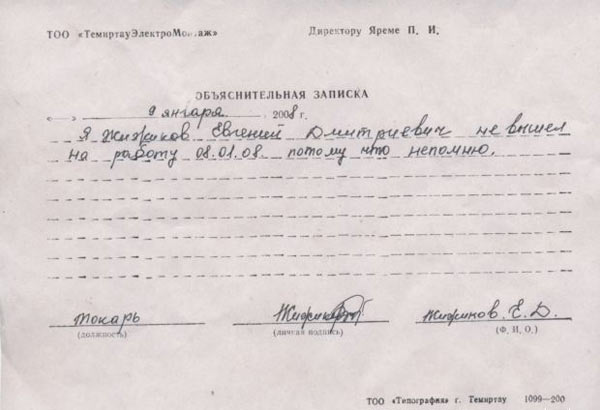 ТОО «ТемиртауЭлектроМонтаж» Директору Яреме П. И.
ОБЪЯСНИТЕЛЬНАЯ ЗАПИСКА
« » 9 января 2008 г.
Я Евгений Дмитриевич не вышел
на работу 08.01.08. потому что непомню.
токарь Е. Д.
(должность) (личная подпись) (Ф. И. О.)
ТОО «Типография» г. Темиртау 1099—200